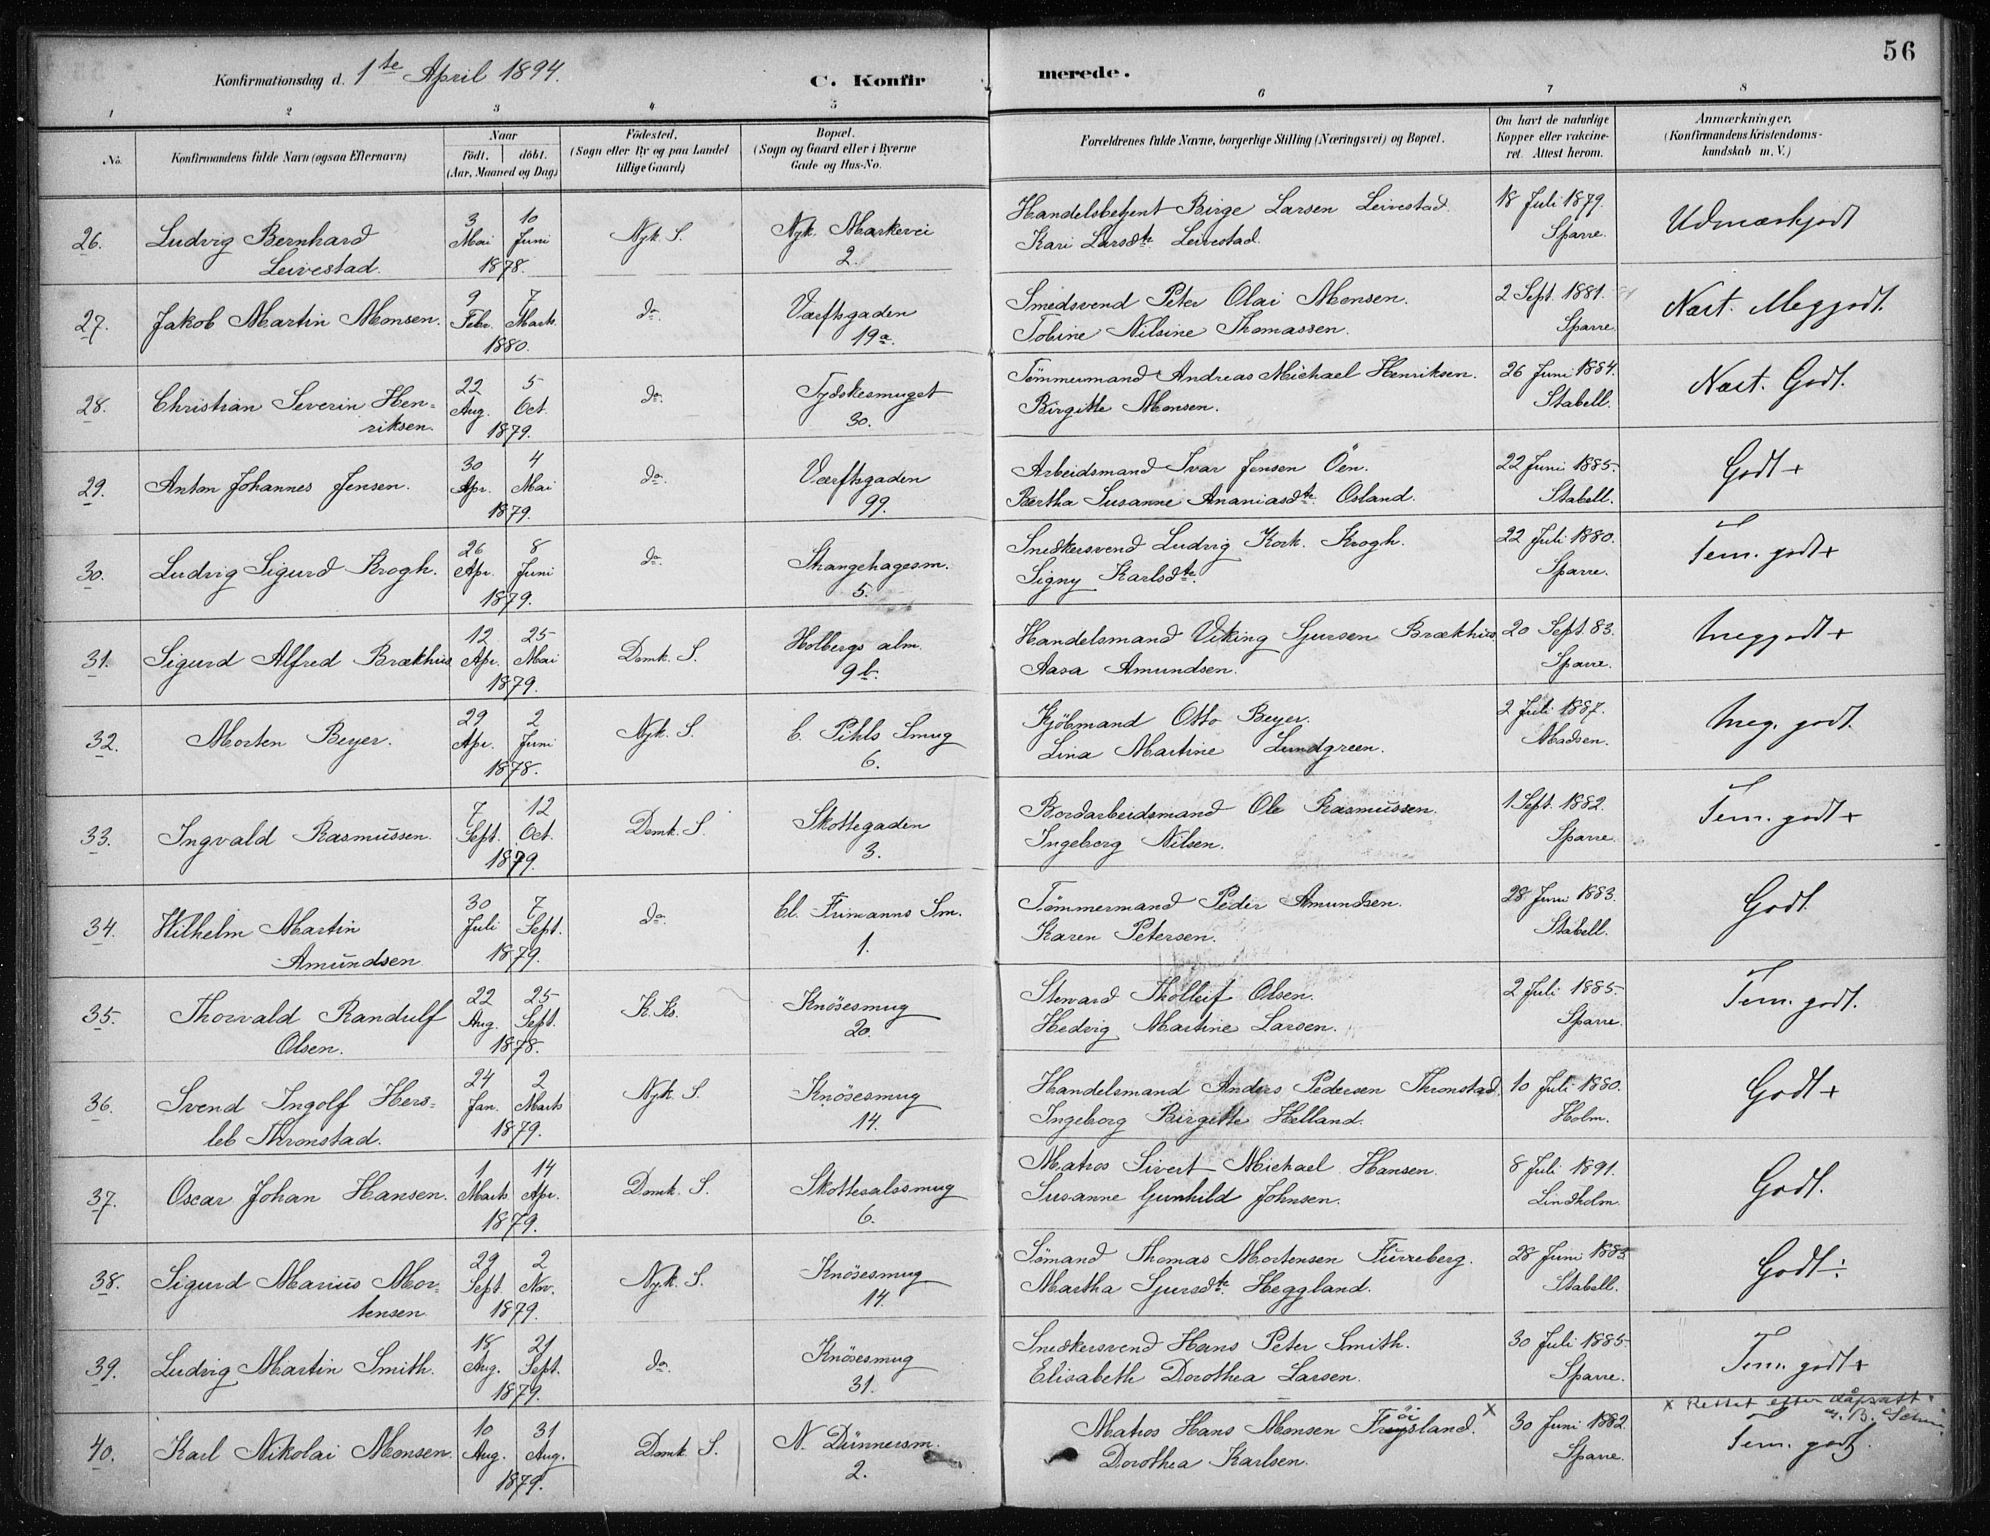 56
Konfirmationsdag d. 1ste April 1894.
C. Konfirmerede.
1 2 3 4 5 6 7 8
No. | Konfirmandens fulde Navn (ogsaa Efternavn) | Naar født. døbt. (Aar, Maaned og Dag) | Fødested. (Sogn eller By og paa Landet tillige Gaard) | Bopæl. (Sogn og Gaard eller i Byerne Gade og Hus-No. | Forældrenes fulde Navne, borgerlige Stilling (Næringsvei) og Bopæl. | Om havt de naturlige Kopper eller vakcineret. Attest herom. | Anmærkninger, (Konfirmandens Kristendomskundskab m. V.)
26. | Ludvig Bernhard Leivestad. | 3 Mai 10 Juni 1878. | Nyk. S. | Nyk. Markevei 2. | Handelsbetjent Birge Larsen Leivestad. Kari Larsdtr. Leivestad. | 18 Juli 1879. Sparre. | Udmærkjodt
27. | Jakob Martin Monsen. | 9 Febr. 7 Marts 1880. | do. | Værftsgaden 19a. | Smedsvend Peter Olai Monsen. Tobine Nilsine Thomassen. | 2 Sept. 1881. Sparre. | Næst. Meggodt.
28. | Christian Severin Henriksen. | 22 Aug. 5 Oct. 1879. | do. | Tydskesmuget 30. | Tømmermand Andreas Michael Henriksen. Birgitte Monsen. | 26 Juni 1884. Stabell. | Næst. Godt.
29. | Anton Johannes Jensen. | 30 Apr. 4 Mai 1879. | do. | Værftsgaden 99. | Arbeidsmand Ivar Jensen Öen. Bertha Susanne Ananiasdtr. Osland. | 22 Juni 1885. Stabell. | Godt +
30. | Ludvig Sigurd Krogh. | 26 Apr. 8 Juni 1879. | do. | Stangehagesm. 5. | Snedkersvend Ludvig Kork. Krogh. Signy Karlsdtr. | 22 Juli 1880. Sparre. | Tem. godt +
31. | Sigurd Alfred Brækhus | 12 Apr. 25 Mai 1879. | Domk. S. | Holbergs alm. 9b. | Handelsmand Viking Sjursen Brækhus Aasa Amundsen. | 20 Sept. 83. Sparre. | Meggodt +
32. | Morten Beyer. | 29 Apr. 2 Juni 1878. | Nyk. S. | C. Pihls Smug 6. | Kjöbmand Otto Beyer. Lina Martine Lundgreen. | 2 Juli 1887. Madsen. | Meg. godt.
33. | Ingvald Rasmussen. | 7 Sept. 12 Oct. 1879. | Domk. S. | Skottegaden 3. | Bordarbeidsmand Ole Rasmussen. Ingeborg Nilsen. | 1 Sept. 1882. Sparre. | Tem. godt +
34. | Wilhelm Martin Amundsen | 30 Juli 7 Sept. 1879. | do. | Cl. Frimanns Sm. 1. | Tømmermand Peder Amundsen. Karen Petersen. | 28 Juni 1883. Stabell. | Godt.
35. | Thorvald Randulf Olsen. | 22 Aug. 25 Sept. 1878. | K. Ks. | Knösesmug 20. | Steward Thollef Olsen. Hedvig Martine Larsen. | 2 Juli 1885. Sparre. | Tem. godt.
36. | Svend Ingolf Hersleb Thronstad. | 24 Jan. 2 Marts 1879. | Nyk. S. | Knösesmug 14. | Handelsmand Anders Pedersen Thronstad. Ingeborg Birgitte Helland. | 10 Juli 1880. Holm. | Godt +
37. | Oscar Johan Hansen. | 1 Marts 14 Apr. 1879. | Domk. S. | Skottesalssmug 6. | Matros Sivert Michael Hansen. Susanne Gunhild Johnsen. | 8 Juli 1891. Lindholm. | Godt.
38. | Sigurd Marius Mortensen | 29 Sept. 2 Nov. 1879. | Nyk. S. | Knösesmug 14. | Sømand Thomas Mortensen Furreberg. Martha Sjursdtr. Heggland. | 28 Juni 1883 Stabell. | Godt ÷
39. | Ludvig Martin Smith. | 18 Aug. 21 Sept. 1879. | do. | Knösesmug 31. | Snedkersvend Hans Peter Smith. Elisabeth Dorothea Larsen. | 30 Juli 1885. Sparre. | Tem. godt +
40. | Karl Nikolai Monsen. | 10 Aug. 31 Aug. 1879. | Domk. S. | N. Dünnersm. 2. | Matros Hans Monsen Fröisland. x Dorothea Karlsen. | 30 Juni 1882. Sparre. | x Rettet efter dåpsatt. Tem. godt.